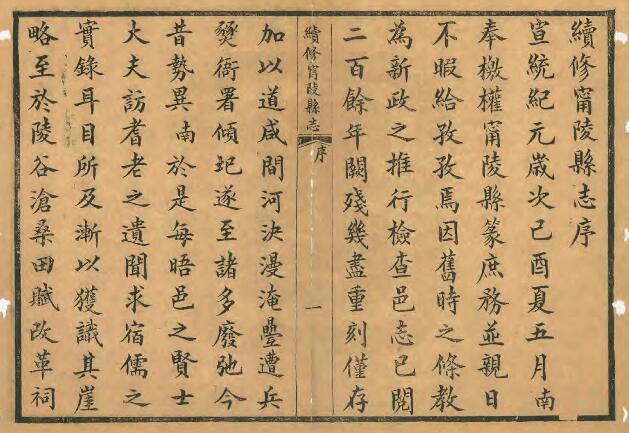 續修甯陵縣志序
宣統紀元歲次己酉夏五月南
奉檄權甯陵縣篆庶務並親日
不暇給孜孜焉因舊時之條教
為新政之推行檢查邑志已閱
二百餘年闕殘幾盡重刻僅存
續修甯陵縣志 序 一
加以道咸間河決漫淹疊遭兵
燹衙署傾圮遂至諸多廢弛今
昔勢異南於是每晤邑之賢士
大夫訪耆老之遺聞求宿儒之
實錄耳目所及漸以獲識其崖
略至於陵谷滄桑田賦改革祠